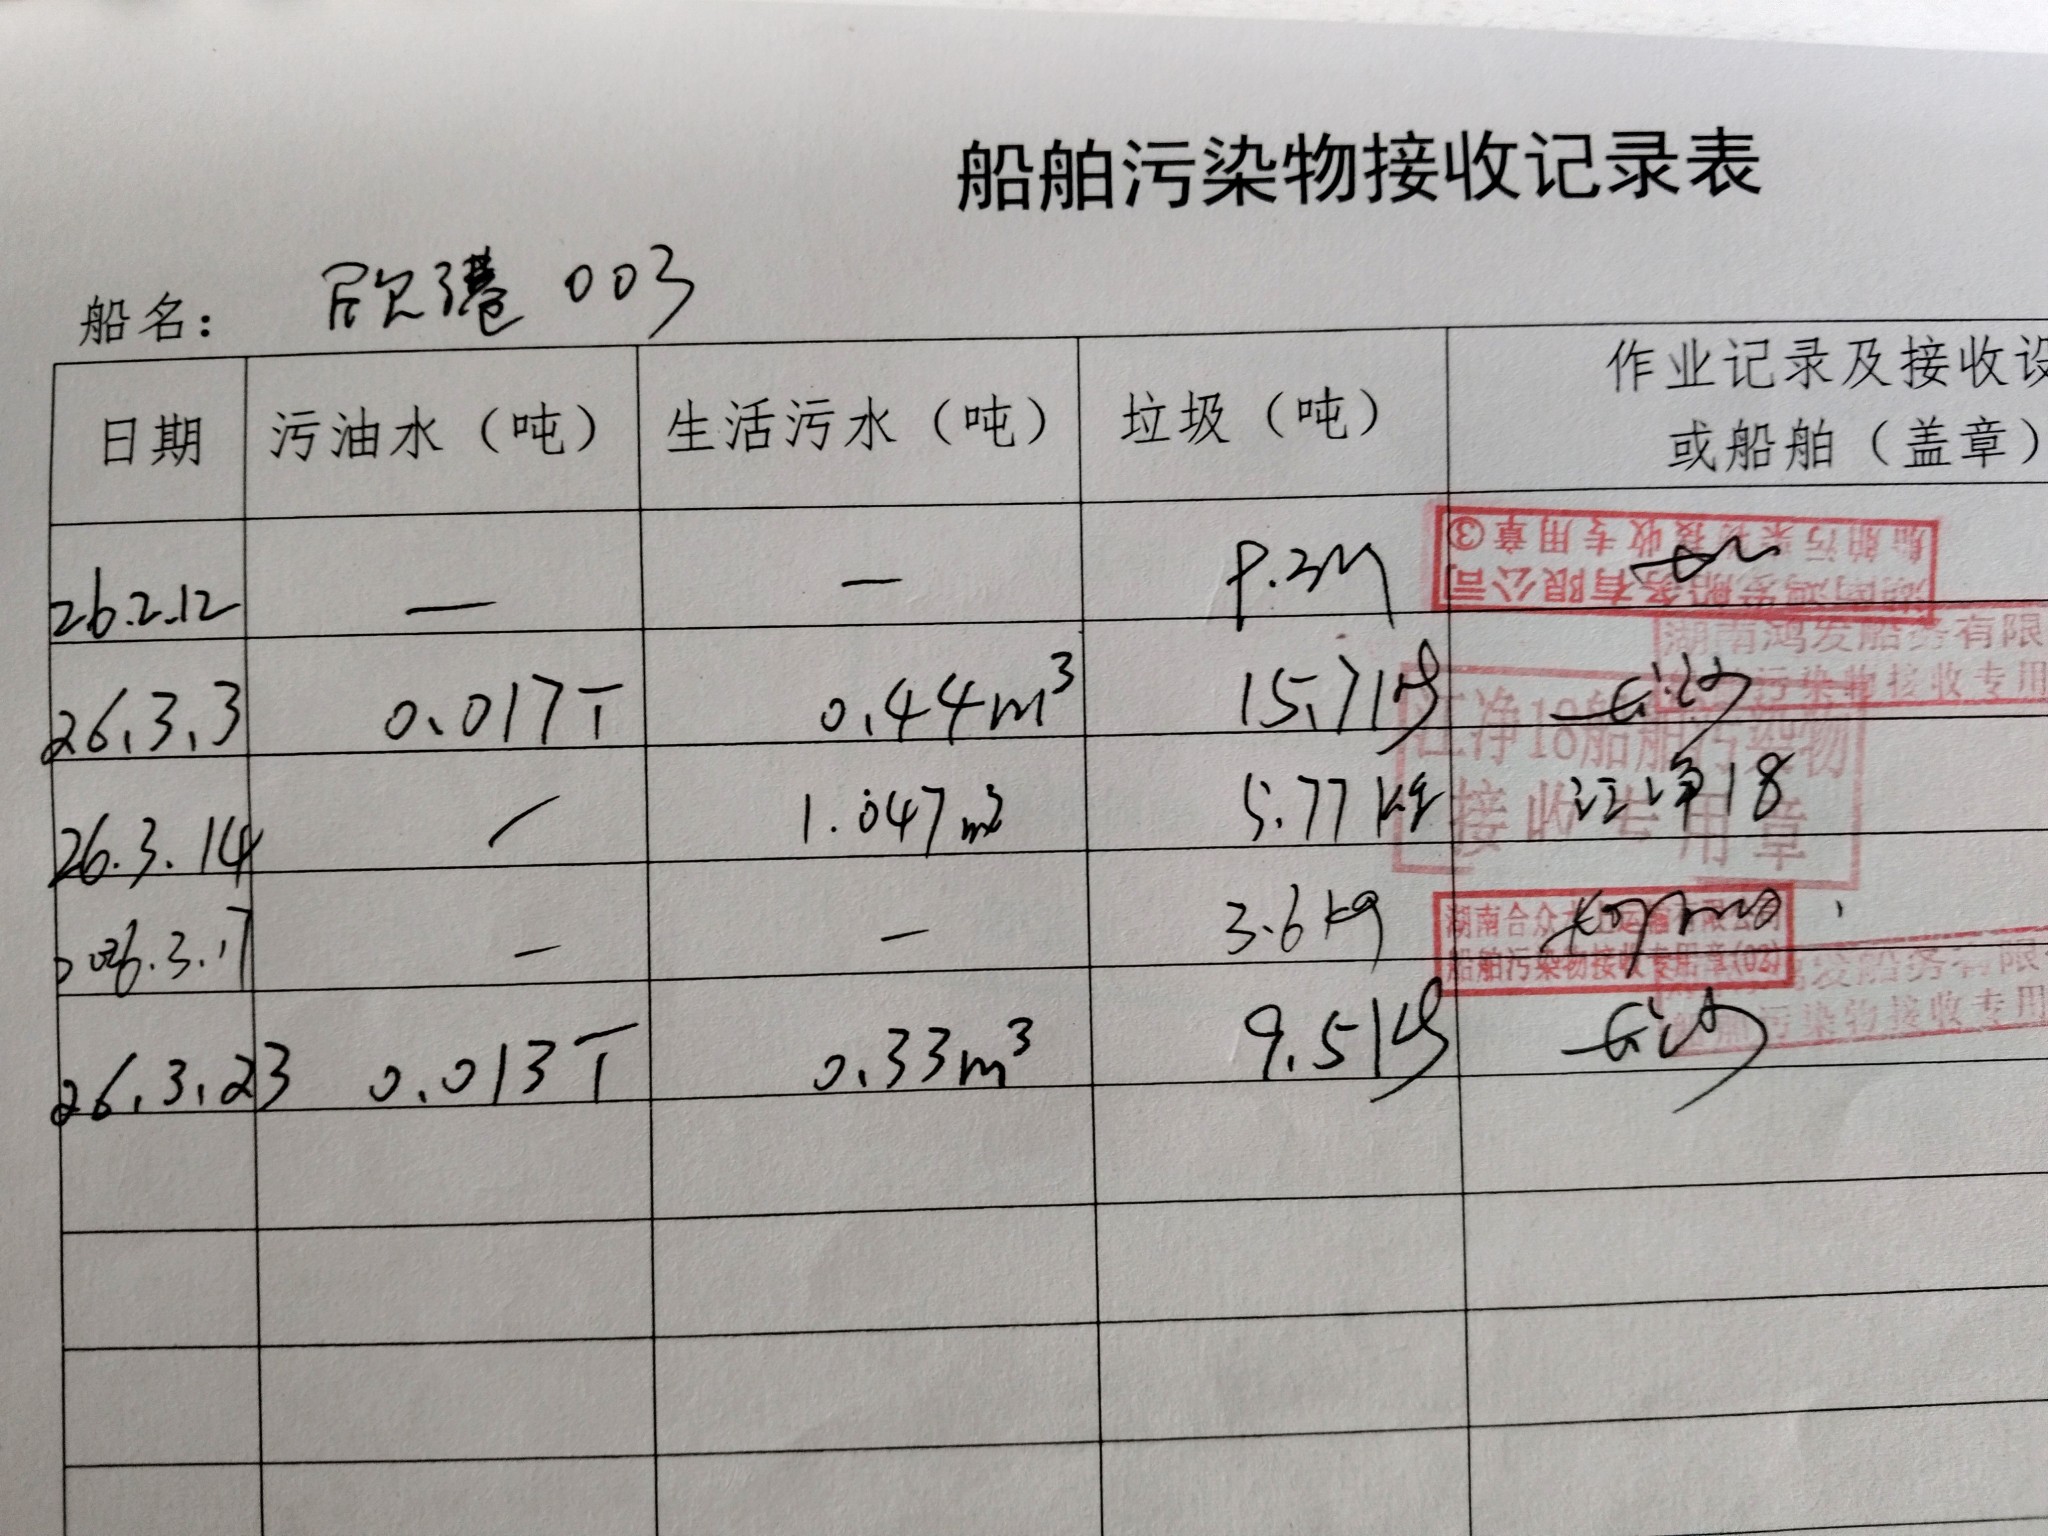 船舶污染物接收记录表
船名： 欣港 003
日期 污油水（吨） 生活污水（吨） 垃圾（吨） 作业记录及接收设
或船舶（盖章）
船舶污染物接收专用章③
务有限公司
26.2.12 — —
湖南鸿发船务有限
污染物接收专用
26.3.3 0.017T 0.44m³ 15.7kg
江净18船舶污染物
接收专用章
26.3.14 / 1.047m³ 5.77kg 江净18
2026.3.17 — — 3.6kg
湖南合众水上运输有限公司
船舶污染物接收专用章(02)
发船务有限
污染物接收专用
26.3.23 0.013T 0.33m³ 9.5kg